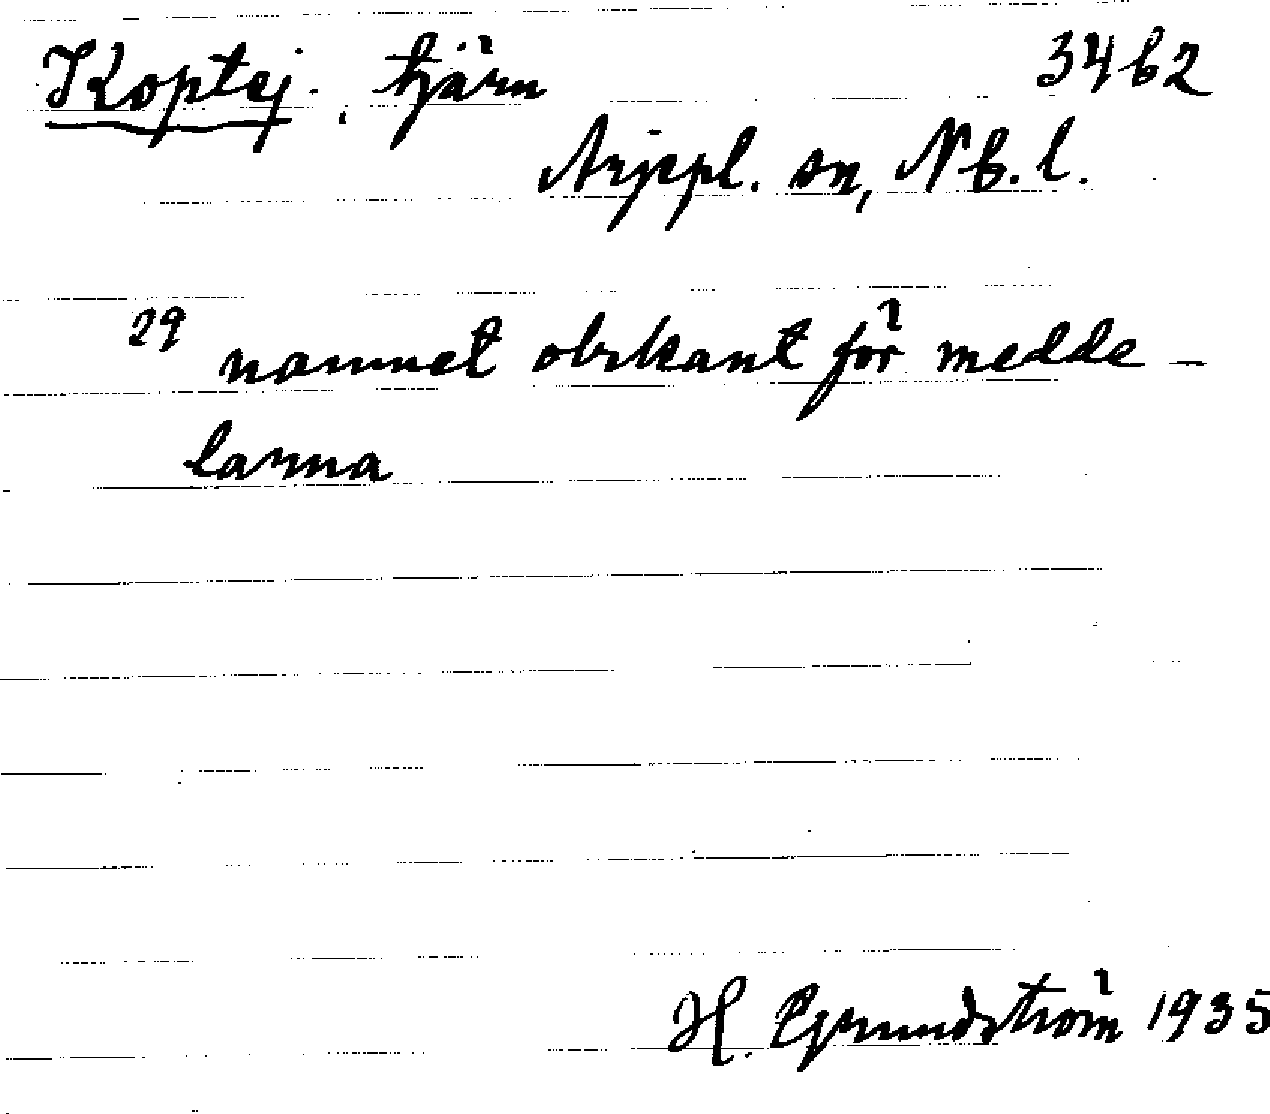 Koptej, tjärn 3462
Arjepl. sn, Nb. l.
29
namnet obekant för medde-
larna
H. Grundström 1935